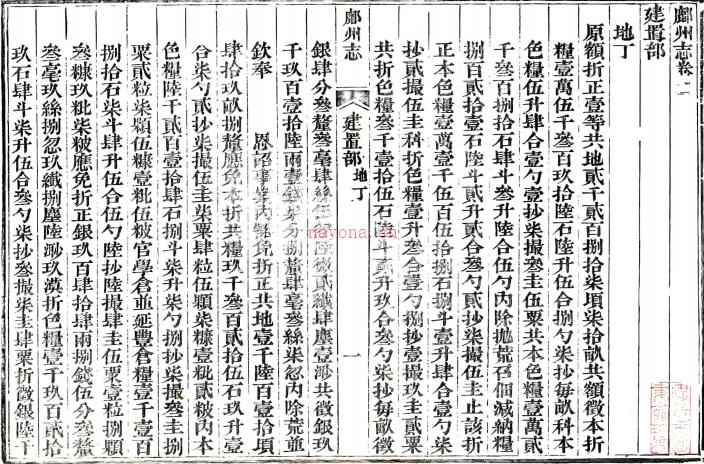 鄜州志卷二
建置部
地丁
原額折正壹等共地貳千貳百捌拾柒頃柒拾畝共額徵本折
糧壹萬伍千叄百玖拾陸石陸升伍合捌勺柒抄每畝科本
色糧伍升肆合壹勺壹抄柒撮叄圭伍粟共本色糧壹萬貳
千叄百捌拾石肆斗叄升陸合伍勺內除拋荒召佃減納糧
捌百貳拾壹石陸斗貳升貳合叄勺貳抄柒撮伍圭止該折
正本色糧壹萬壹千伍百伍拾捌石捌斗壹升肆合壹勺柒
抄貳撮伍圭科折色糧壹升叄合壹勺捌抄壹撮玖圭貳粟
共折色糧叄千壹拾伍石陸斗貳升玖合叄勺柒抄每畝徵
鄜州志 建置部 地丁 一
銀肆分叄釐叄毫肆絲伍忽陸微貳纖肆塵壹渺共徵銀玖
千玖百壹拾陸兩壹錢柒分捌釐肆毫叄絲柒忽內除荒並
欽奉 恩詔事案內免折正共地壹千陸百壹拾頃
肆拾玖畝捌釐應免本折共糧玖千叄百貳拾伍石玖升壹
合柒勺貳抄柒撮伍圭柒粟肆粒伍顆柒糠壹粃貳粺內本
色糧陸千貳百壹拾肆石捌斗柒升柒勺捌抄柒撮叄圭捌
粟貳粒柒顆伍糠壹粃伍粺官學倉並延豐倉糧壹千壹百
捌拾石柒斗肆升伍合伍勺陸抄陸撮肆圭伍粟壹粒捌顆
叄糠玖粃柒粺應免折正銀玖百肆拾肆兩捌錢伍分叄釐
叄毫玖絲捌忽玖纖捌塵陸渺玖漠折色糧壹千玖百貳拾
玖石肆斗柒升伍合叄勺柒抄叄撮柒圭肆粟折徵銀陸千
nayona.cn